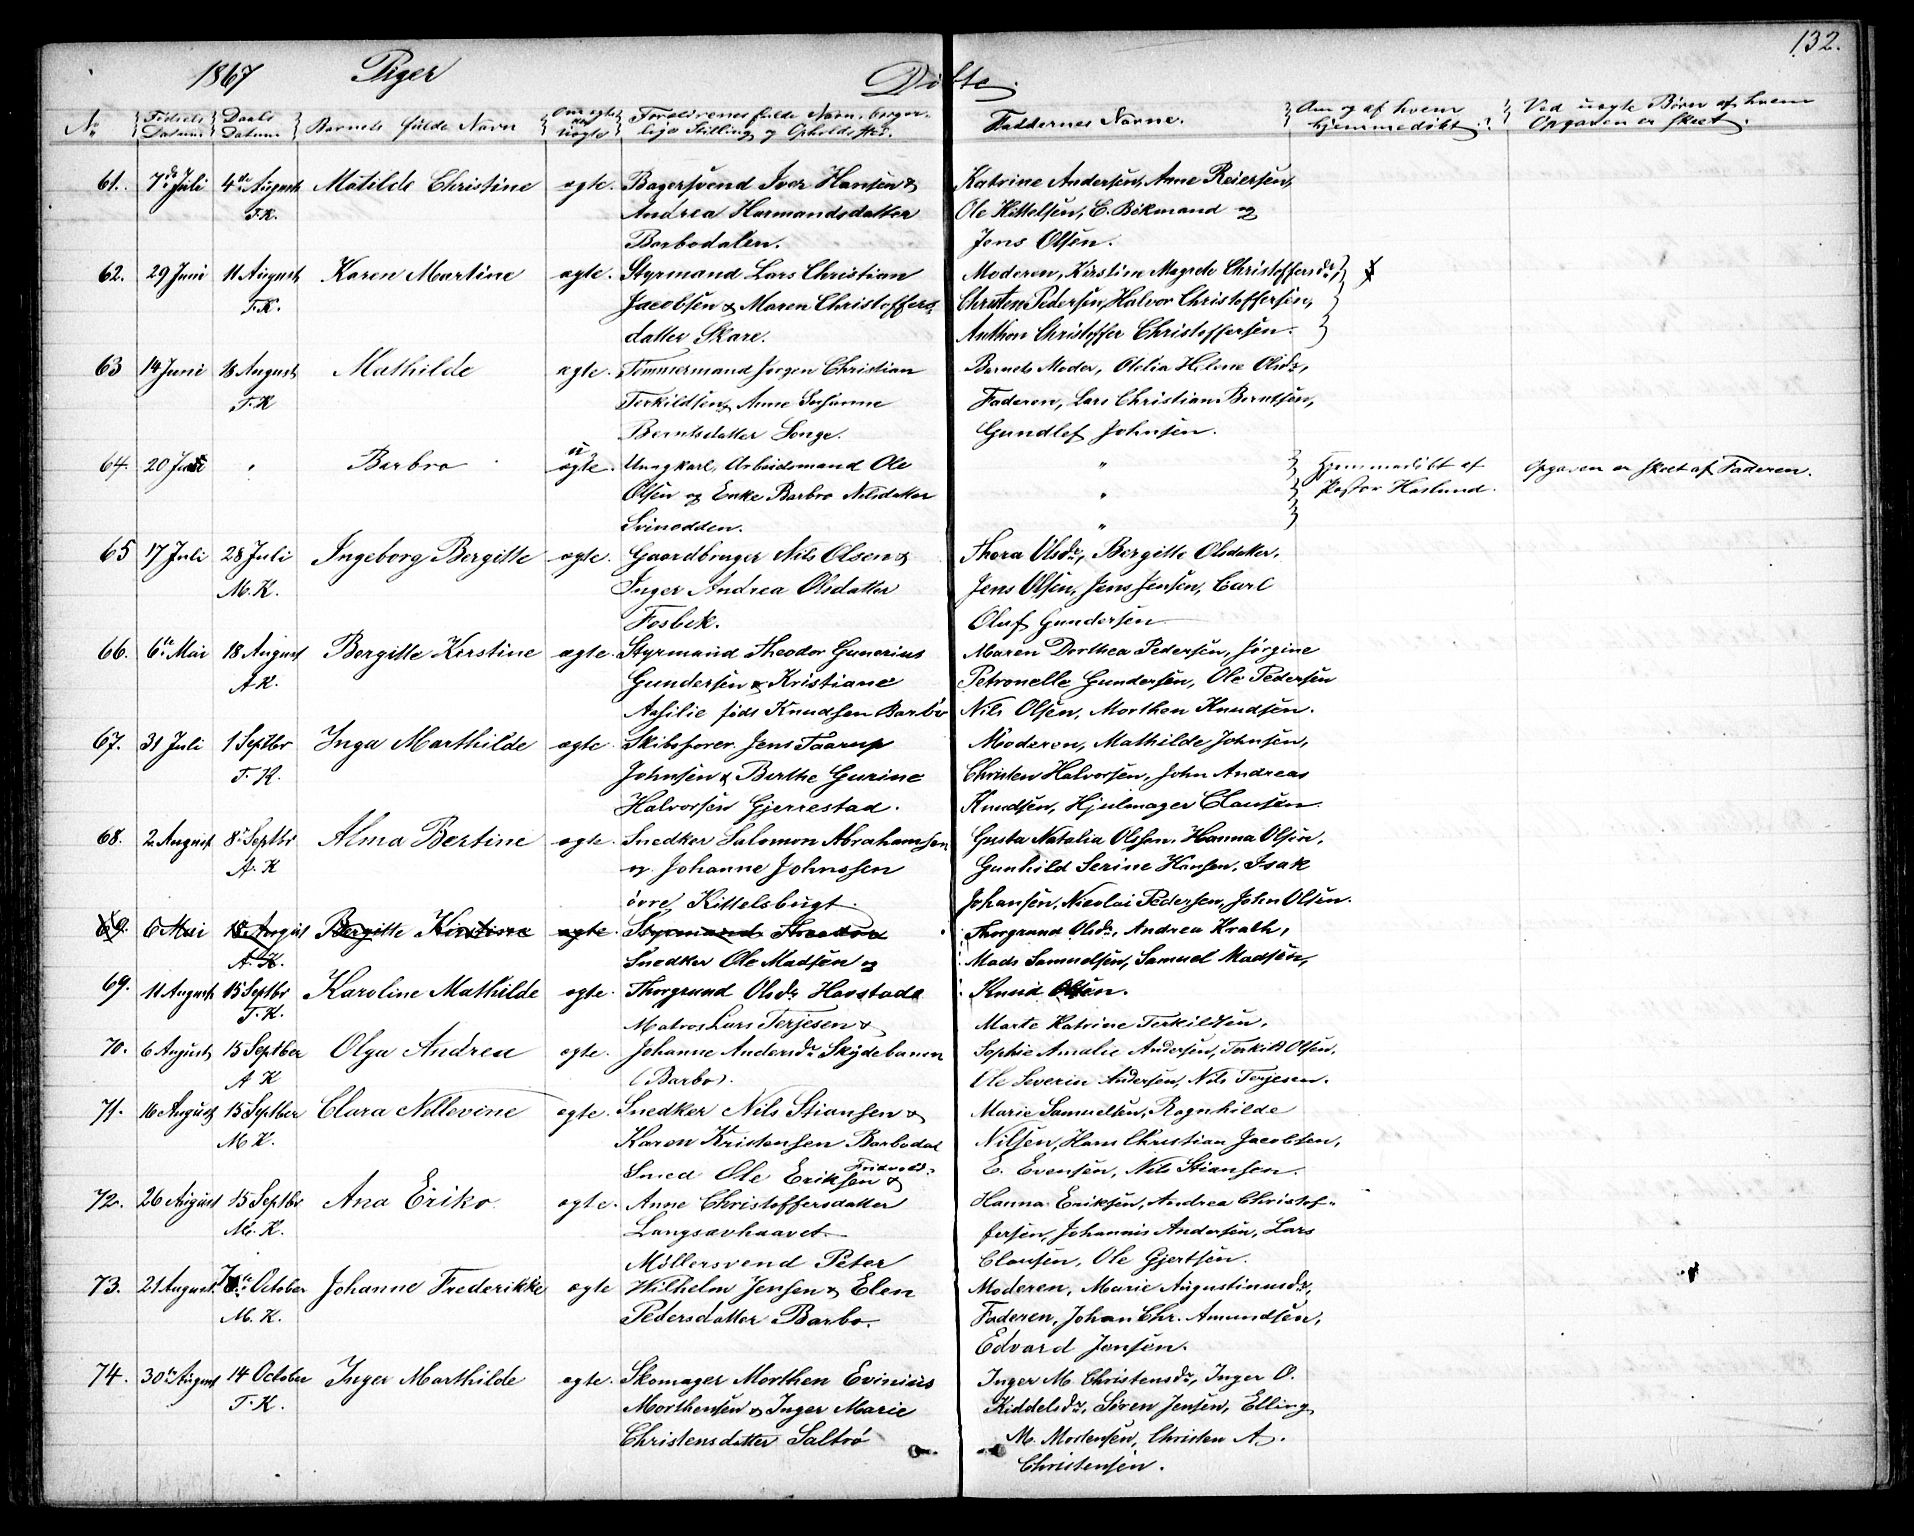 132.
1867 Piger Døbte.
No Fødsels Datum. Daabs Datum. Barnets fulde Navn Om ægte eller uægte Forældrenes fulde Navn, borger-
lige Stilling og Opholdssted. Faddernes Navne. Om og af hvem hjemmedøbt. Ved uægte Børn af hvem Opgaven er skeet.
61. 7de Juli 4de August Matilde Christine ægte. Bagersvend Iver Hansen & Katrine Andersen, Anne Reiersen,
F.K. Andrea Harmandsdatter Ole Kittelsen, C. Bökmand og
Barbodalen. Jens Olsen.
62. 29 Juni 11 August Karen Martine ægte. Styrmand Lars Christian Moderen, Kirstine Magrete Christoffersdr,
F.K. Jacobsen & Maren Christoffers- Christen Pedersen, Halvor Christoffersen,
datter Skare. Anthon Christoffer Christoffersen.
63 14 Juni 18 August Mathilde ægte. Tømmermand Jørgen Christian Barnets Moder, Otelia Helene Olsdr,
F.K Terkildsen & Anne Susanne Faderen, Lars Christian Berntsen,
Berntsdatter Songe. Gundlef Johnsen.
64. 20 Juni " Barbro uægte. Ungkarl, Arbeidsmand Ole " Hjemmedöbt af Opgaven er skeet af Faderen.
Olsen og Enke Barbro Nilsdatter " Pastor Haslund.
Svinodden. "
65 17 Juli 28 Juli Ingeborg Bergitte ægte. Gaardbruger Nils Olsen & Thora Olsdr, Bergitte Olsdatter.
M.K. Inger Andrea Olsdatter Jens Olsen, Jens Jensen, Carl
Fosbek. Oluf Gundersen
66. 6te Mai 18 August Bergitte Kirstine ægte. Styrmand Theodor Gunerius Maren Dorthea Pedersen, Jørgine
A K. Gundersen & Kristiane Petronelle Gundersen, Ole Pedersen
Aasilie føds Knudsen Barbo Nils Olsen, Morthen Knudsen.
67. 31 Juli 1 Septbr Inga Marthilde ægte Skibsfører Jens Taarup Moderen, Mathilde Johnsen,
F.K. Johnsen & Berthe Gurine Christen Halvorsen, John Andreas
Halvorsen Gjerrestad. Knudsen, Hjulmager Clausen
68. 2 August 8. Septbr Alma Bertine ægte. Snedker Salomon Abrahamsen Gusta Natalia Olsson, Hanna Olsen,
A.K og Johanne Johnssen Gunhild Serine Hansen, Isak
övre Kittelsbugt. Johansen, Nicolai Pedersen, John Olsen.
69. 6 Mai 18. August Bergitte Kirstine ægte. Styrmand Theodor Thorgrund Olsdr, Andrea Krath,
A.K. Snedker Ole Madsen og Mads Samuelsen, Samuel Madsen,
69. 11 August 15 Septbr Karoline Mathilde ægte. Thorgrund Olsdr Havstad Knud Olsen.
F.K. Matros Lars Terjesen & Marte Katrine Terkildsen,
70. 6 August 15 Septber Olga Andrea ægte. Johanne Andersdr Skydebanen Sophie Amalie Andersen, Terkild Olsen,
A K (Barbo). Ole Severin Andersen, Nils Terjesen.
71. 16 August 15 Septber Clara Nillevine ægte. Snedker Nils Stiansen & Marie Samuelsen, Ragnhilde
M.K. Karen Kristensen Barbodal Nilsen, Hans Christian Jacobsen,
Smed Ole Eriksen Fridvold & E. Evensen, Nils Stiansen.
72. 26 August 15 Septbr Ana Eriko ægte. Anne Christoffersdatter Hanna Eriksen, Andrea Christof-
M.K. Langsævhaavet fersen, Johannis Andersen, Lars
Möllersvend Peter Clausen, Ole Gjertsen.
73. 21 August 7de October Johanne Frederikke ægte Wilhelm Jensen & Elen Moderen, Marie Augustinusdr,
M.K. Pedersdatter Barbo. Faderen, Johan Chr. Amundsen,
Edvard Jensen.
74. 30te August 14 October Inger Marthilde ægte. Skomager Morthen Evinius Inger M. Christensdr, Inger O.
F.K. Morthensen & Inger Marie Kiddelsdr, Søren Jensen, Elling
Christensdatter Saltrö M. Mortensen, Christen A.
Christensen.